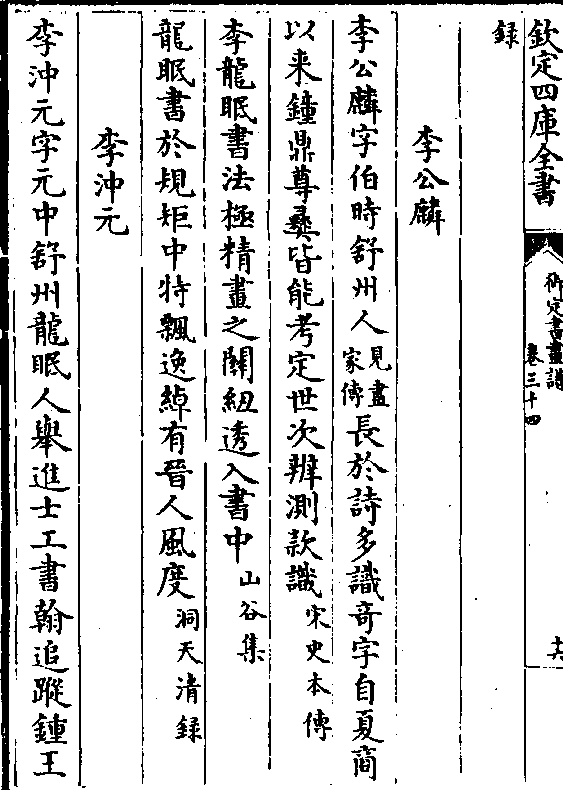 欽定四庫全書
御定書畫譜
卷三十四
十六
錄
李公麟
李公麟字伯時舒州人見畫家傳長於詩多識竒字自夏商
以來鐘鼎尊彞皆能考定世次辨測款識宋史本傳
李龍眠書法極精畫之關紐透入書中山谷集
龍眠書於規矩中特飄逸綽有晉人風度洞天清錄
李沖元
李沖元字元中舒州龍眠人舉進士工書翰追蹤鍾王